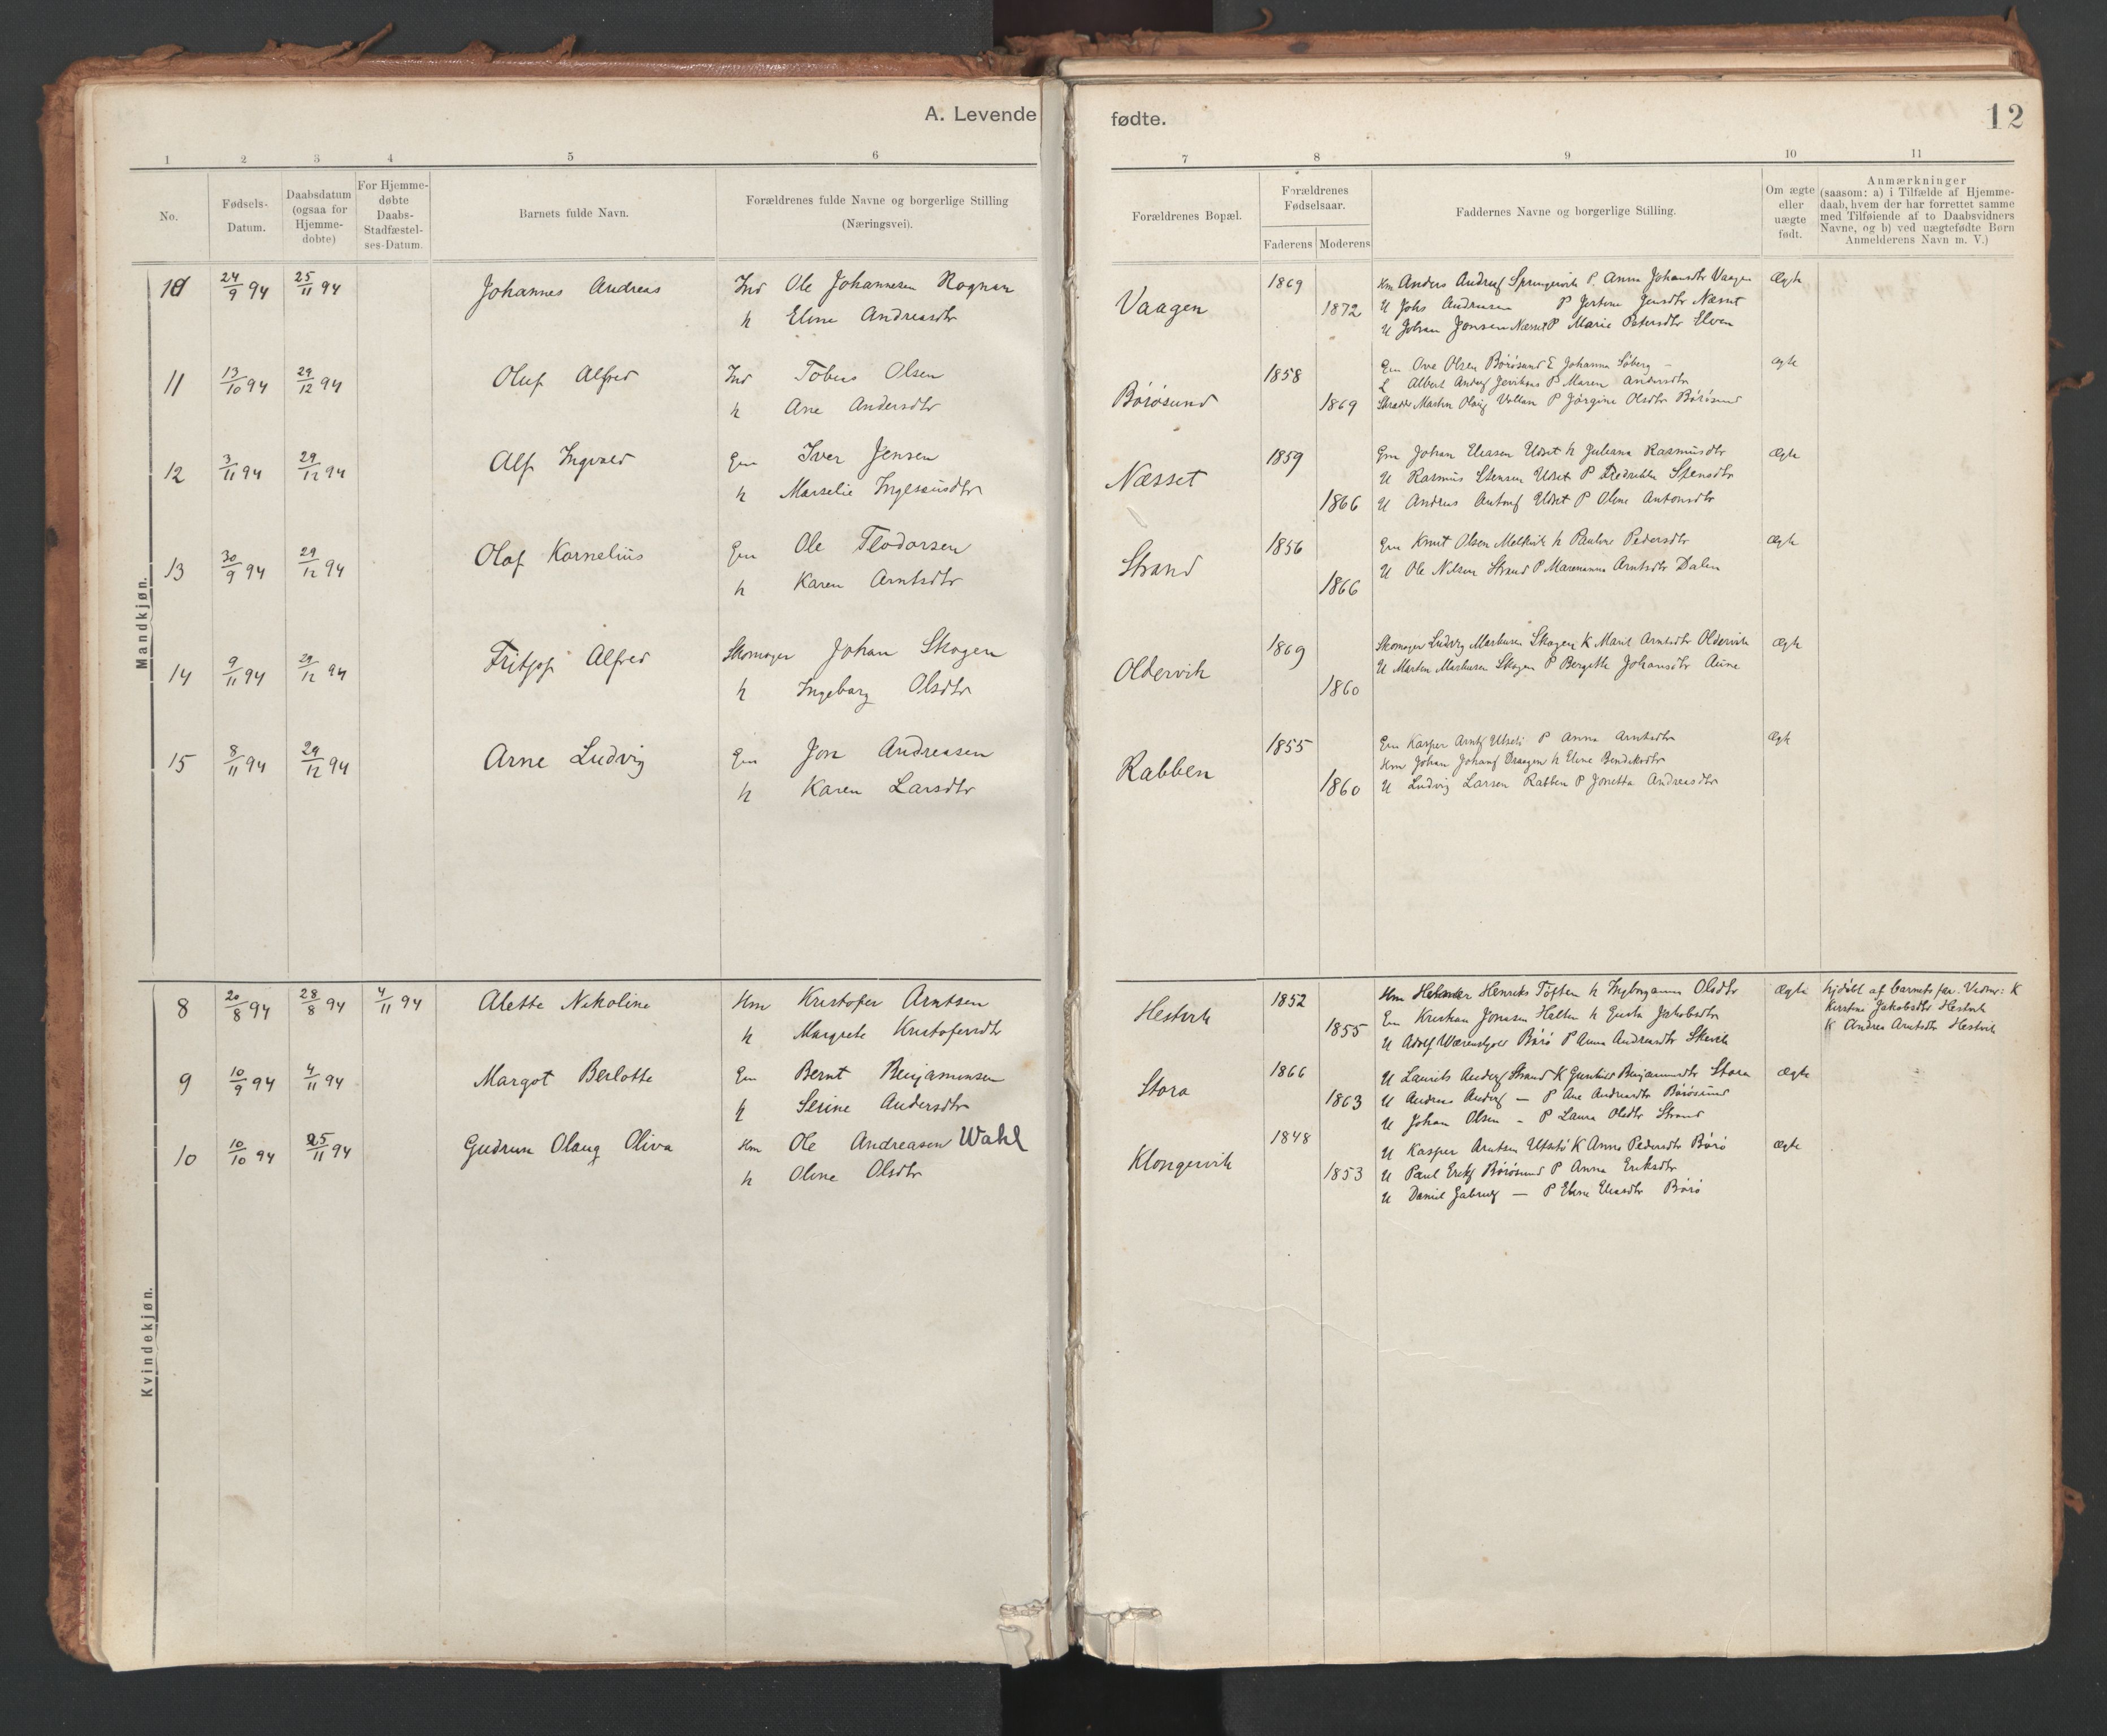 A. Levende fødte. 12
1 2 3 4 5 6 7 8 9 10 11
No.
Fødsels-
Datum.
Daabsdatum
(ogsaa for
Hjemme-
døbte)
For Hjemme-
døbte
Daabs-
Stadfæstel-
ses-Datum.
Barnets fulde Navn.
Forældrenes fulde Navne og borgerlige Stilling
(Næringsvei).
Forældrenes Bopæl.
Forældrenes
Fødselsaar.
Faderens Moderens
Faddernes Navne og borgerlige Stilling.
Om ægte
eller
uægte
født.
Anmærkninger
(saasom: a) i Tilfælde af Hjemme-
daab, hvem der har forrettet samme
med Tilføiende af to Daabsvidners
Navne, og b) ved uægtefødte Børn
Anmelderens Navn m. V.)
Mandkjøn.
10 24/9 94 25/11 94 Johannes Andreas Ind Ole Johannesen Rognan
h Eline Andreasdtr
Vaagen 1869 1872
Anders Andrsf Springervik P. Anna Johansdtr Vaagen Ægte
U Johs Andreasen P Jensdtr Næsset
U Johan Jonsen Næsset P Marie Petersdtr Elven
11 13/10 94 29/12 94 Oluf Alfred Ind Tobias Olsen
h Ane Andersdtr
Børøsund 1858 1869
Gm Ove Olsen Børøsund E Johanna Søberg ægte
L Albert Andersf P Maren Andersdtr
Martin Vollan P Jørgine Olsdtr Børøsund
12 3/11 94 29/12 94 Alf Ingvald Gm Iver Jensen
h Marselie
Næsset 1859 1866
Gm Johan Eliasen Udset h Juliana Rasmusdtr Ægte
U Rasmus Stensen Udset P Stensdtr
U Andreas Antonsf Udset P Oline Antonsdtr
13 30/9 94 29/12 94 Olaf Kornelius Gm Ole Teodorsen
h Karen Arntsdtr
Strand 1856 1866
Gm Knut Olsen h Pauline Pedersdtr Ægte
U Ole Nilsen Strand P Marenanna Arntsdtr Dalen
14 9/11 94 29/12 94 Fritjof Alfred Skomager Johan Skogen
h Ingeborg Olsdtr
Oldervik 1869 1860
Skomager Ludvig Markusen Skogen K Marit Arntsdtr Oldervik Ægte
U Martin Markusen Skogen P Bergitte Johansdtr Aune
15 8/11 94 29/12 94 Arne Ludvig Gm Jon Andreasen
h Karen Larsdtr
Rabben 1855 1860
Gm Kasper Arntsf Utsetø P Anna Arntsdtr Ægte
Hm Johan Johansf h Eline Bendiksdtr
U Ludvig Larsen Rabben P Jonetta Andreasdtr
Kvindekjøn.
8 20/8 94 28/8 94 4/11 94 Alette Nikoline Hm Kristofer Arntsen
h Margrete Kristofersdtr
Hestvik 1852 1855
Hm Henriks Toften h Ingeborganna Olsdtr Ægte
Gm Kristian Jonasen h Jakobsdtr
U Adolf Børø P Anna Andreasdtr
hjdøbt af barnets far. Vidner: K
Kirstine Jakobsdtr Hestvik
K Andrea Arntsdtr Hestvik
9 10/9 94 4/11 94 Margot Berlotte Gm Bernt Benjaminsen
h Serine Andersdtr
Stora 1866 1863
U Laurits Andersf Strand K Benjaminsdtr Stora ægte
U Andreas Andersf — P Ane Andreasdtr Børøsund
U Johan Olsen - P Laura Olsdtr Strand
10 10/10 94 25/11 94 Gudrun Olaug Oliva Hm Ole Andreasen Wahl
h Oline Olsdtr
Klongervik 1848 1853
U Kasper Arntsen Utsetø K Anne Pedersdtr Børø ægte
U Paul Eriksf Børøsund P Anna Eriksdtr
U Daniel Gabrielsf — P Eline Eliasdtr Børø